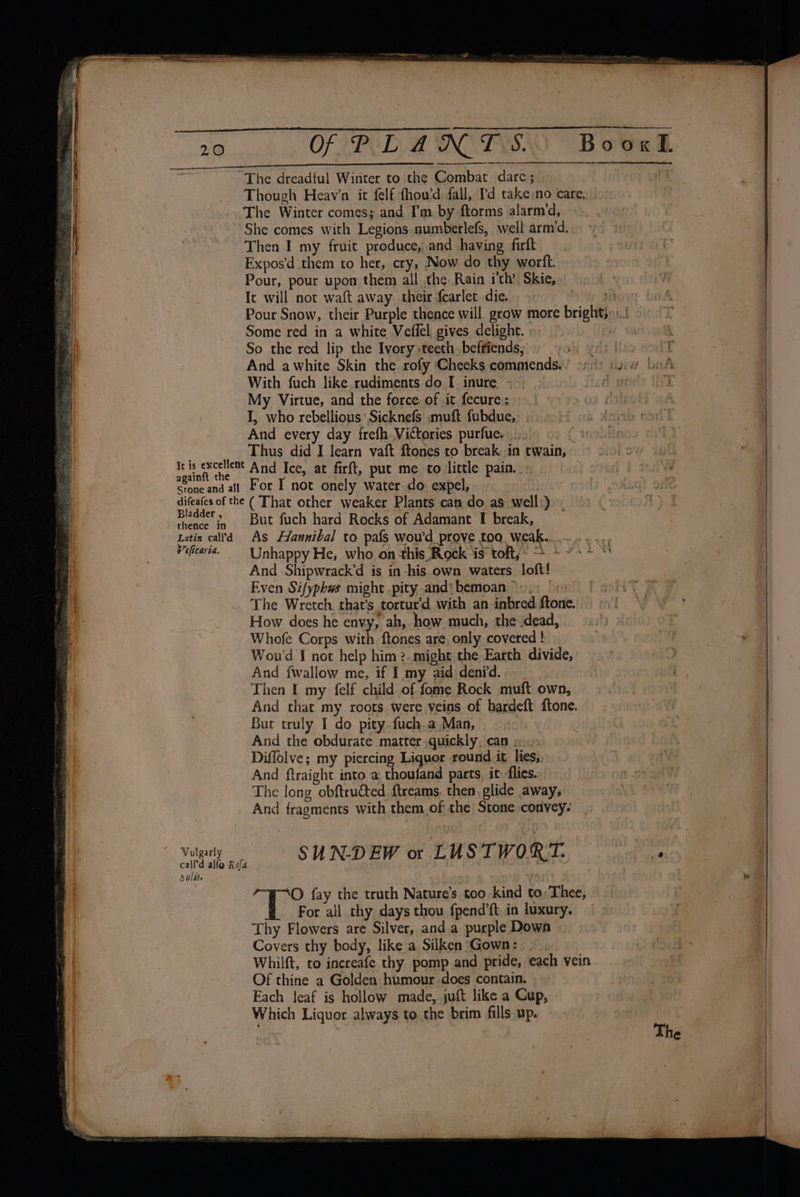 20 Of PLANTS. Book I.
The dreadful Winter to the Combat dare;
Though Heav'n it ſelf ſhou'd fall, I'd take no care.
The Winter comes; and I'm by ſtorms alarm'd,
She comes with Legions numberleſs, well arm'd.
Then I my fruit produce, and having firſt
Expos'd them to her, cry, Now do thy worſt.
Pour, pour upon them all the Rain i'th' Skie,
It will not waſt away their ſcarlet die.
Pour Snow, their Purple thence will grow more bright;
Some red in a white Veſſel gives delight.
So the red lip the Ivory teeth beffiends,
And a white Skin the roſy Cheeks commends.
With ſuch like rudiments do I inure
My Virtue, and the force of it ſecure:
I, who rebellious Sickneſs muſt ſubdue,
And every day freſh Victories purſue.
Thus did I learn vaſt ſtones to break in twain,
It is excellent And Ice, at firſt, put me to little pain.
againſt the
Stone and all For I not onely water do expel,
diſeaſes of the ( That other weaker Plants can do as well )
Bladder,
thence in But ſuch hard Rocks of Adamant I break,
Latin call'd As Hannibal to paſs wou'd prove too weak.
Veſicaria. Unhappy He, who on this Rock is toſt,
And Shipwrack'd is in his own waters loſt!
Even Siſyphus might pity and bemoan
The Wretch that's tortur'd with an inbred ſtone.
How does he envy, ah, how much, the dead,
Whoſe Corps with ſtones are only covered!
Wou'd I not help him? might the Earth divide,
And ſwallow me, if I my aid deni'd.
Then I my ſelf child of ſome Rock muſt own,
And that my roots were veins of hardeſt ſtone.
But truly I do pity ſuch a Man,
And the obdurate matter quickly can
Diſſolve; my piercing Liquor round it lies,
And ſtraight into a thouſand parts it flies.
The long obſtructed ſtreams then glide away,
And fragments with them of the Stone convey.
Vulgarly SUN-DEW or LUSTWORT.
call'd alſo Roſa
Solis.
TO ſay the truth Nature's too kind to Thee,
For all thy days thou ſpend'ſt in luxury.
Thy Flowers are Silver, and a purple Down
Covers thy body, like a Silken Gown:
Whilſt, to increaſe thy pomp and pride, each vein
Of thine a Golden humour does contain.
Each leaf is hollow made, juſt like a Cup,
Which Liquor always to the brim fills up.
The